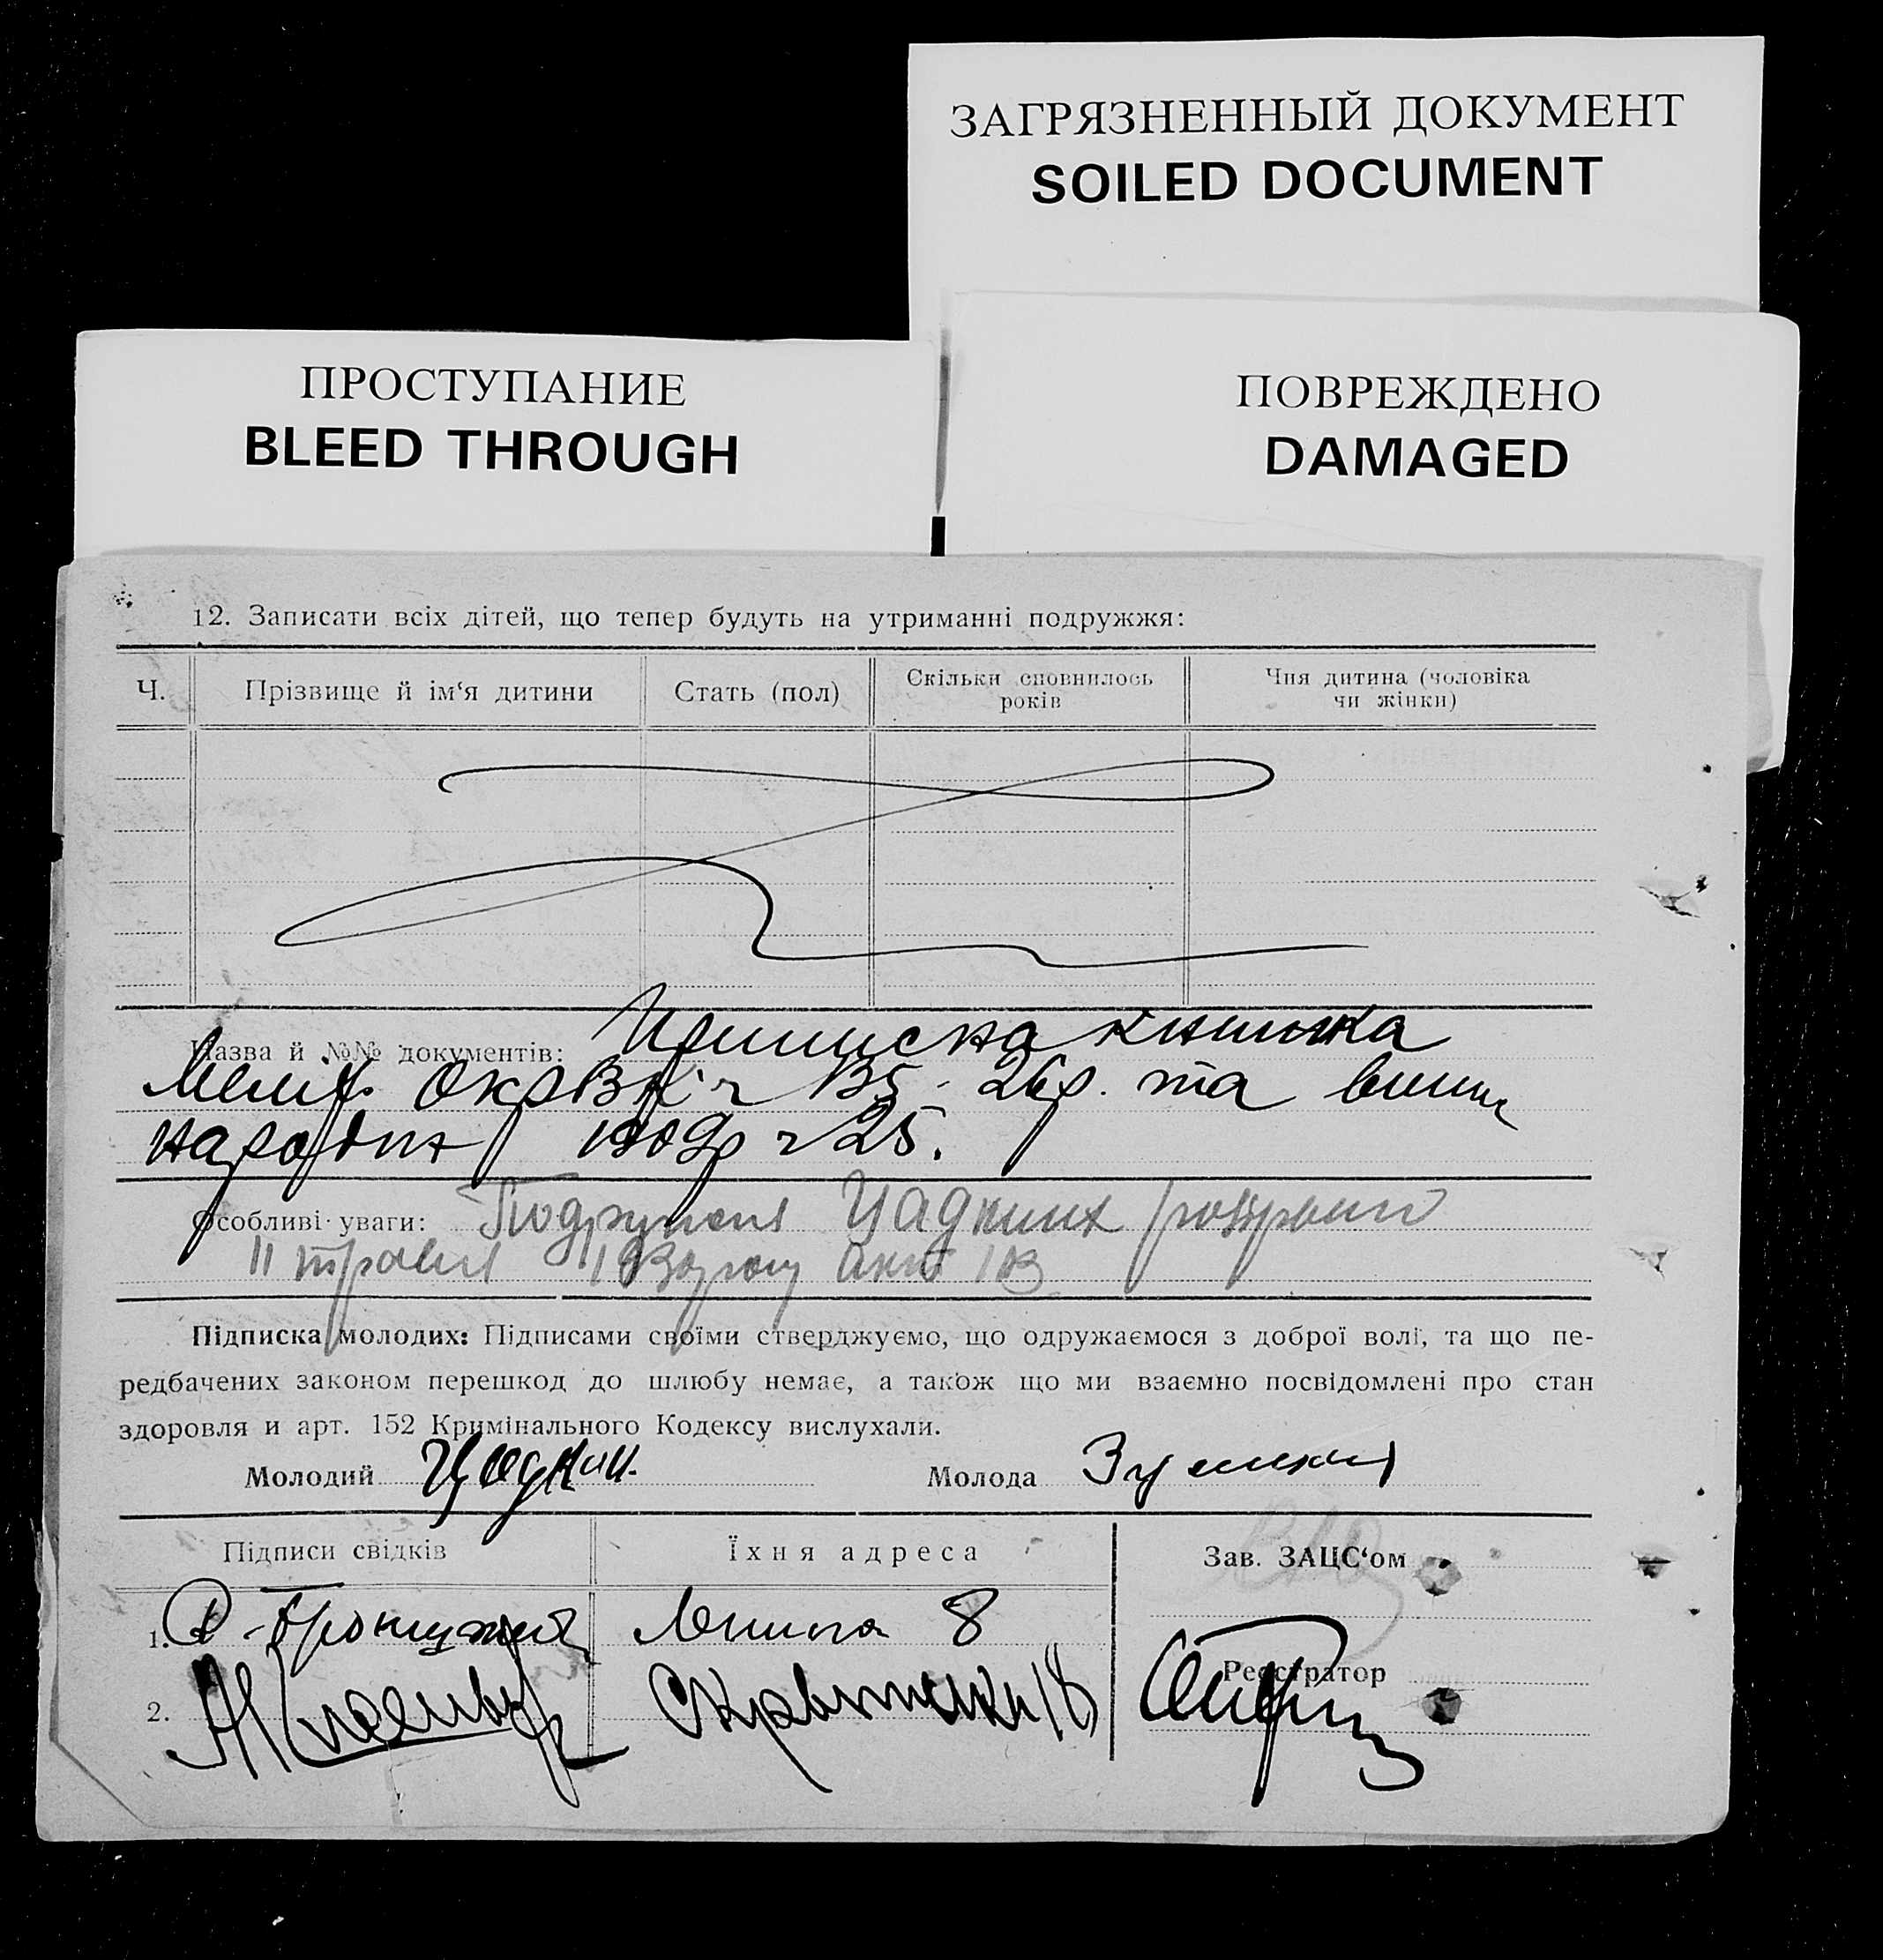 ЗАГРЯЗНЕННЫЙ ДОКУМЕНТ
SOILED DOCUMENT
ПРОСТУПАНИЕ
BLEED THROUGH
ПОВРЕЖДЕНО
DAMAGED
12. Записати всіх дітей, що тепер будуть на утриманні подружжя:
Ч. Прізвище й ім‘я дитини Стать (пол) Скільки сповнилось років Чия дитина (чоловіка чи жінки)
Назва й №№ документів: Приписна книжка
Меліт. Окр 26 р. та
народж 25.
Особливі уваги: Подружжя Цадкиних розірвано
11 травня року акт
Підписка молодих: Підписами своїми стверджуємо, що одружаємося з доброї волі, та що пе-
редбачених законом перешкод до шлюбу немає, а також що ми взаємно посвідомлені про стан
здоровля и арт. 152 Кримінального Кодексу вислухали.
Молодий Цадкин. Молода
Підписи свідків Їхня адреса Зав. ЗАЦС‘ом
1. Леніна 8
Реєстратор
2.